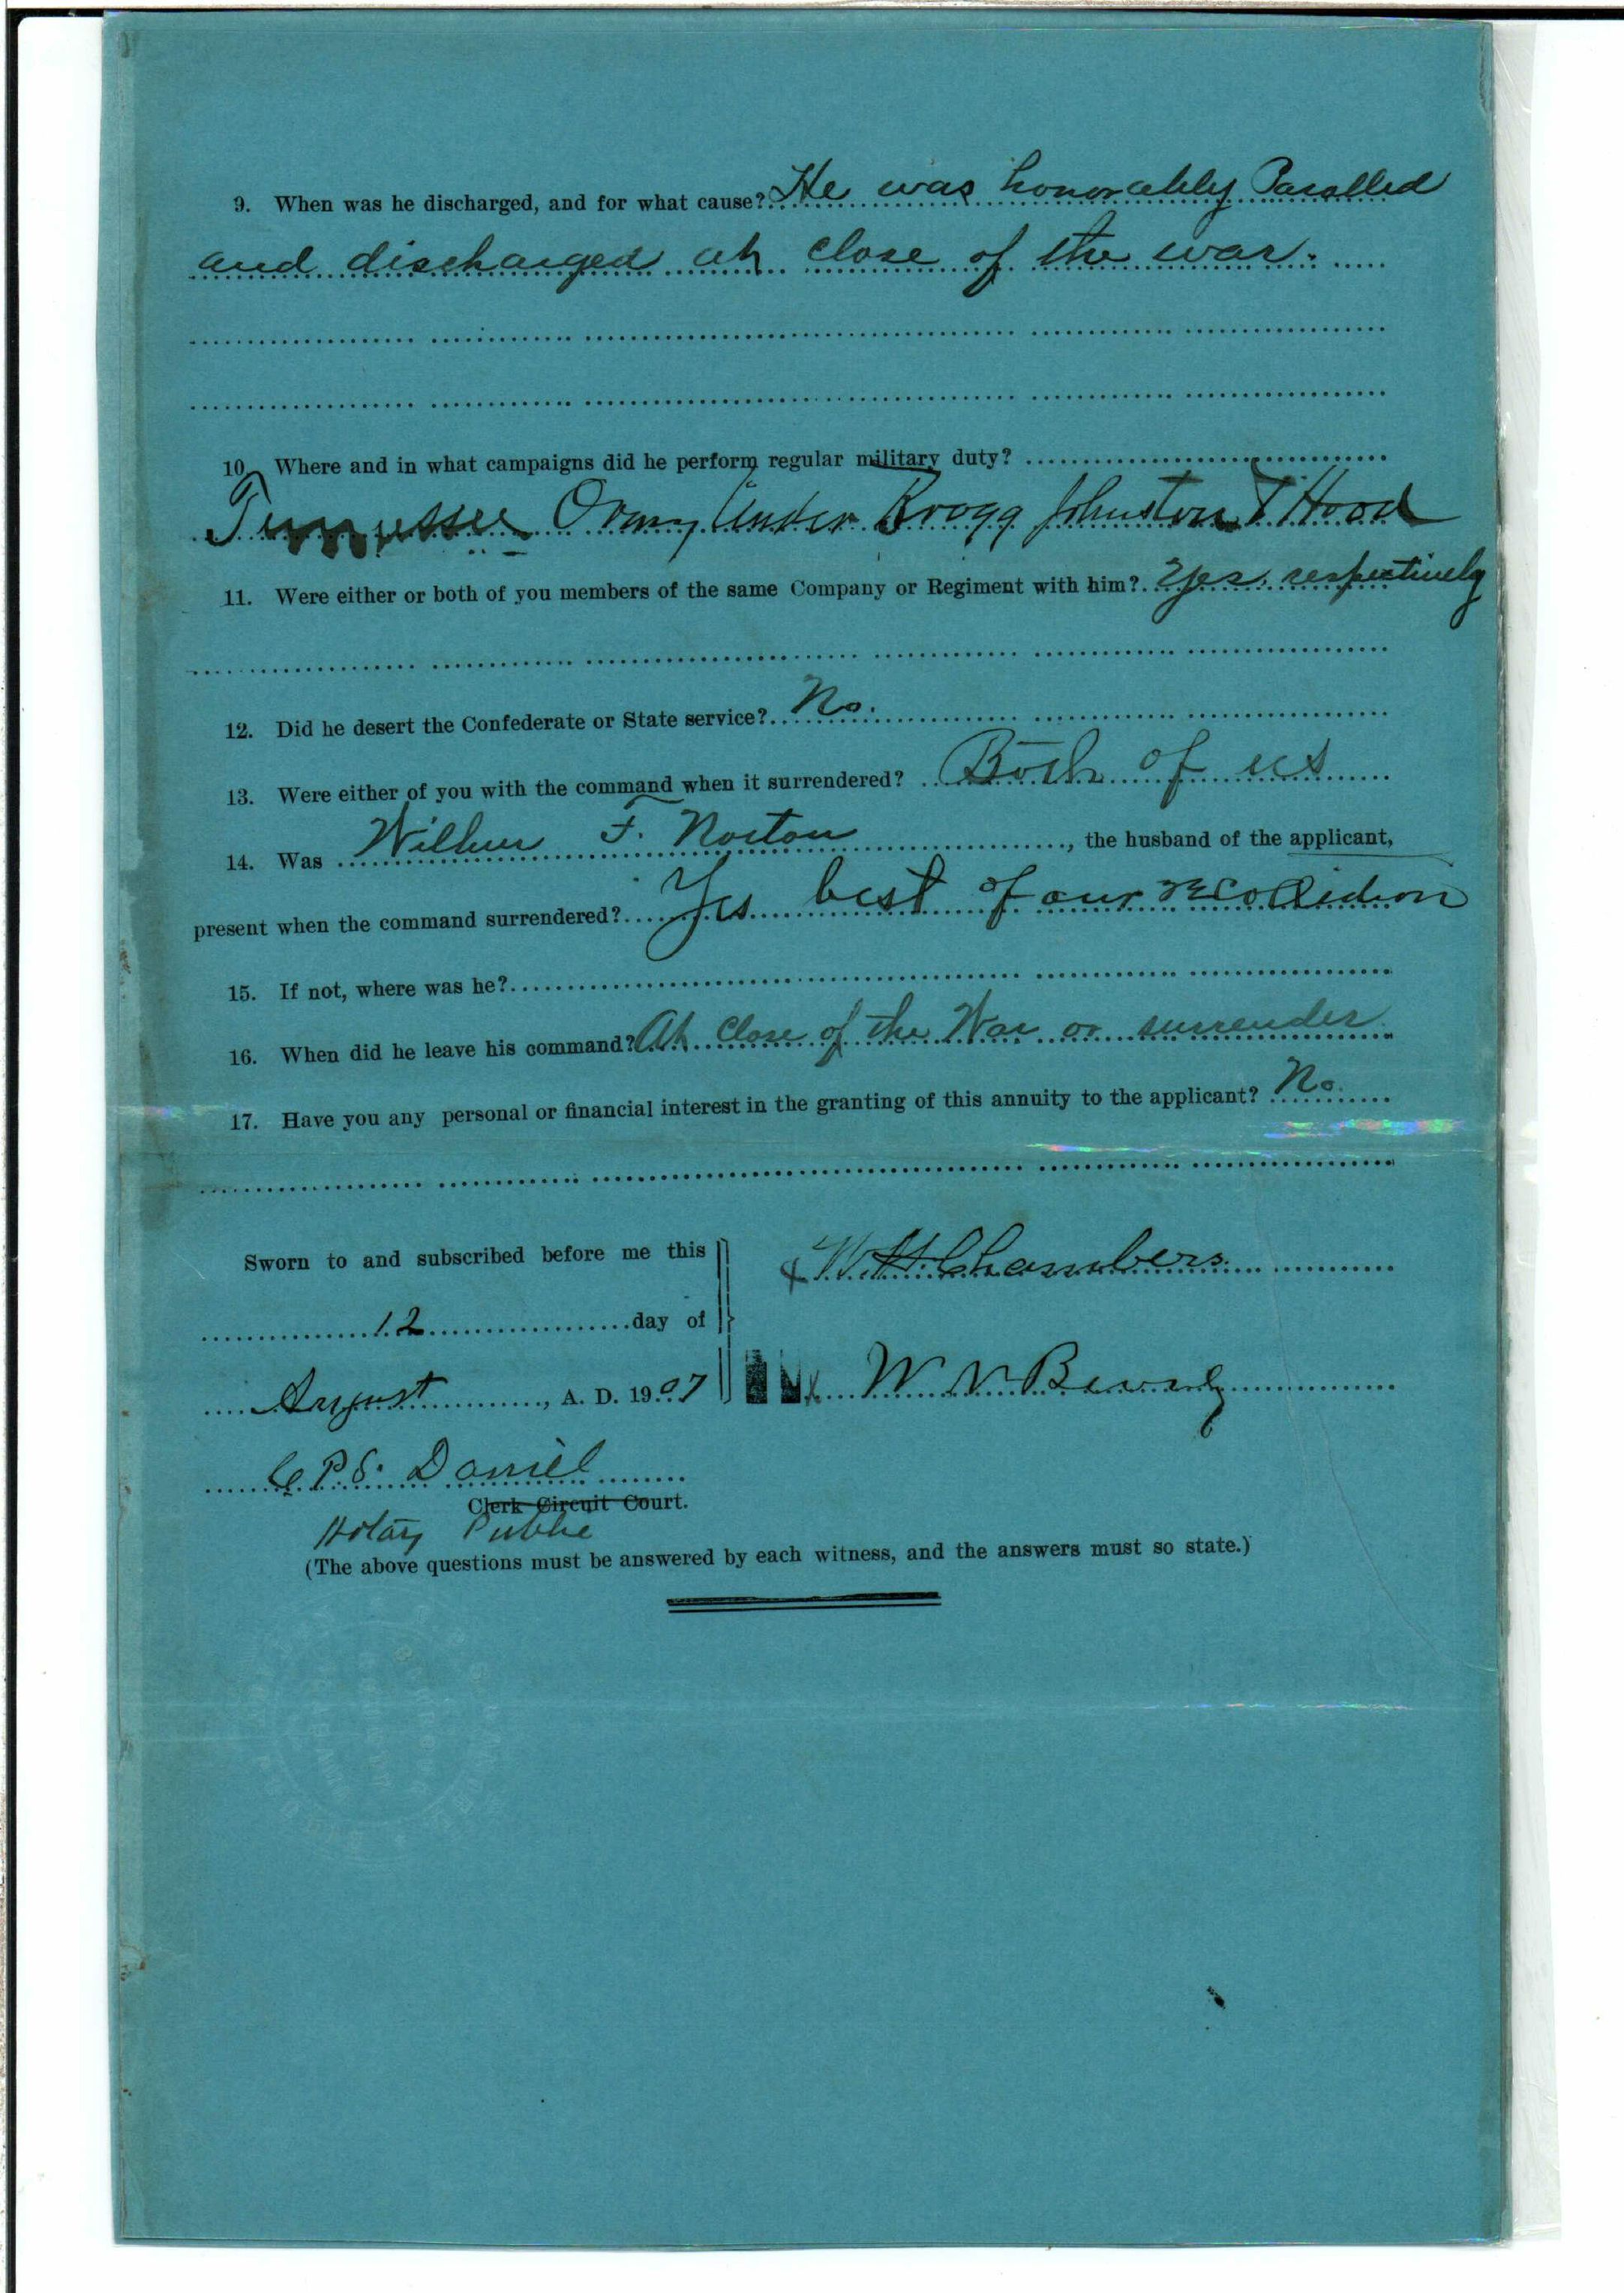 9. When was he discharged, and for what cause? He was honorably Parolled
and discharged at close of the war.
10. Where and in what campaigns did he perform regular military duty?
Tennessee Army Under Bragg Johnston & Hood
11. Were either or both of you members of the same Company or Regiment with him? Yes. respectively
12. Did he desert the Confederate or State service? No.
13. Were either of you with the command when it surrendered? Both of us
14. Was Wilbur F. Norton, the husband of the applicant,
present when the command surrendered? Yes best of our recollection
15. If not, where was he?
16. When did he leave his command? At Close of the War or surrender
17. Have you any personal or financial interest in the granting of this annuity to the applicant? No.
Sworn to and subscribed before me this
x W. H. Chambers
12 day of
August, A. D. 1907
x W N
C P. S. Daniel
Clerk Circuit Court.
Notary Public
(The above questions must be answered by each witness, and the answers must so state.)